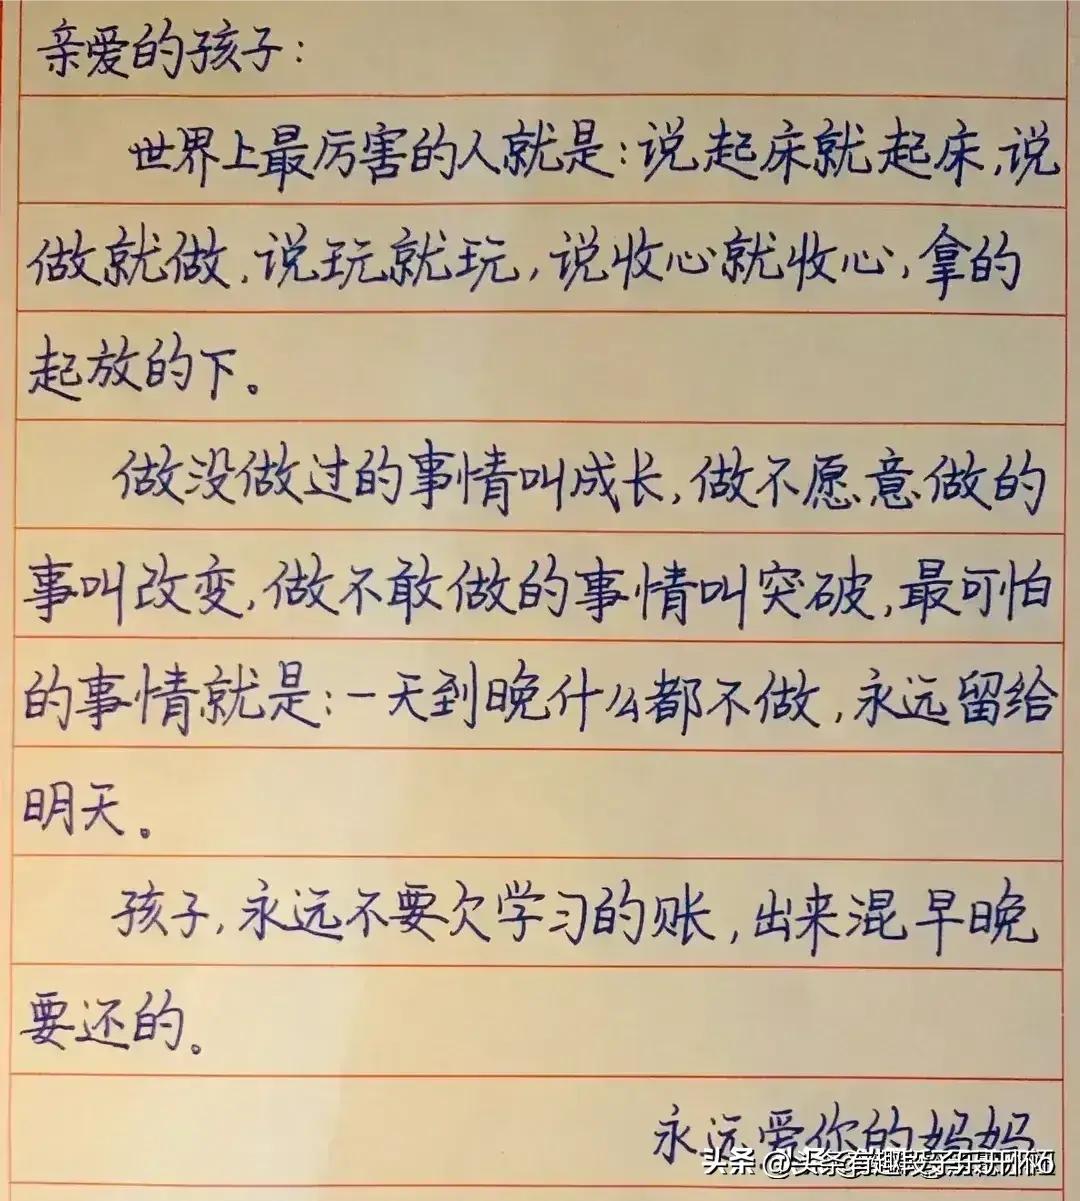 亲爱的孩子:
世界上最厉害的人就是:说起床就起床,说
做就做,说玩就玩,说收心就收心,拿的
起放的下。
做没做过的事情叫成长,做不愿意做的
事叫改变,做不敢做的事情叫突破,最可怕
的事情就是:一天到晚什么都不做,永远留给
明天。
孩子,永远不要欠学习的账,出来混早晚
要还的。
永远爱你的妈妈
头条 @头条有趣段子